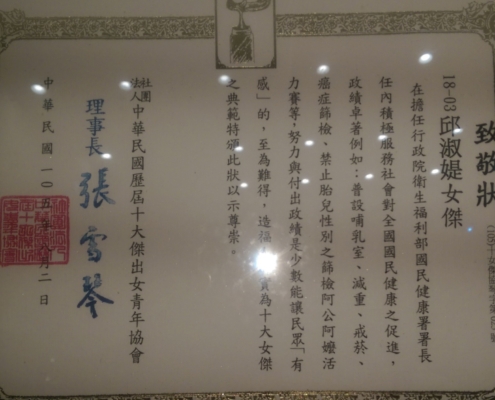 致敬狀
18-03 邱淑媞女傑
在擔任行政院衛生福利部國民健康署署長
任內積極服務社會對全國國民健康之促進，
政績卓著例如：普設哺乳室、減重、戒菸、
癌症篩檢、禁止胎兒性別之篩檢阿公阿嬤活
力賽等，努力與付出政績是少數能讓民眾「有
感」的，至為難得，造福 為十大女傑
之典範特頒此狀以示尊崇。
社團
法人中華民國歷屆十大傑出女青年協會
理事長 張雪琴
中華民國一○五年 月二日